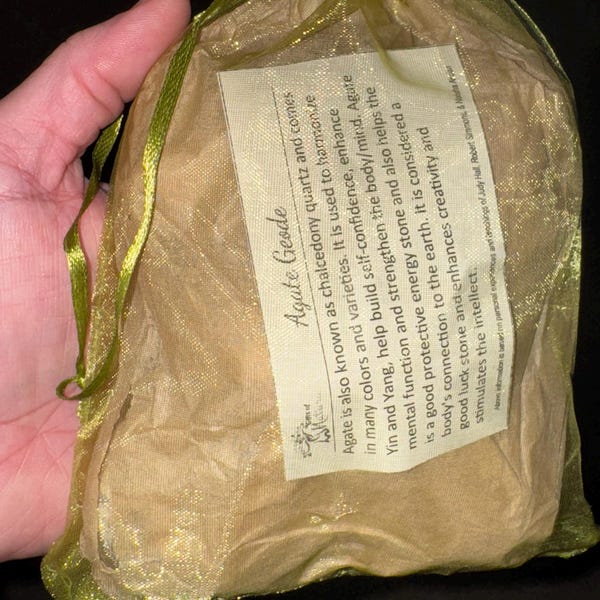 Agate Geode
Agate is also known as chalcedony quartz and comes
in many colors and varieties. It is used to harmonize
Yin and Yang, help build self-confidence, enhance
mental function and strengthen the body/mind. Agate
is a good protective energy stone and also helps the
body's connection to the earth. It is considered a
good luck stone and enhances creativity and
stimulates the intellect.
Above information is based on personal experiences and of Judy Hall, Robert Simmons, &